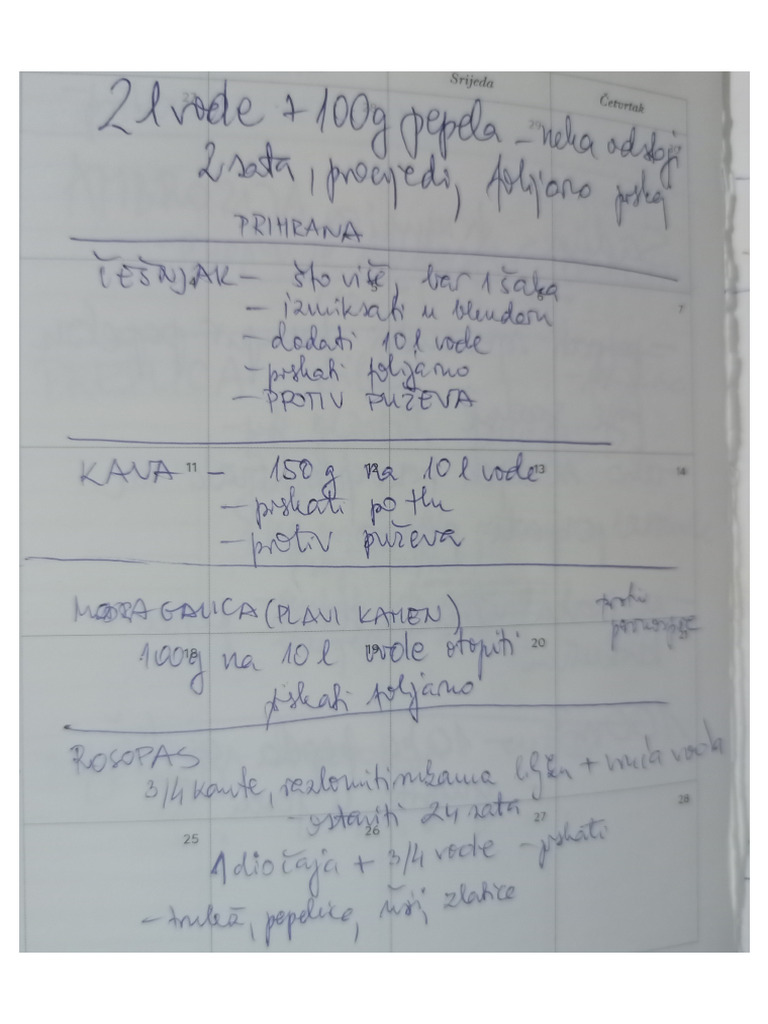 Srijeda
Četvrtak
2 l vode + 100g pepela – neka odstoji
2 sata, procijedi, folijarno prskaj
PRIHRANA
ČEŠNJAK – što više, bar 1 šaka
7
– izmiksati u blendoru
– dodati 10 l vode
– prskati folijarno
– PROTIV PUŽEVA
KAVA 11 – 150 g na 10 l vode 13
14
– prskati po tlu
– protiv puževa
MODRA GALICA (PLAVI KAMEN)
protiv
100g na 10 l vode otopiti 20
prskati folijarno
ROSOPAS
3/4 kante, razlomiti rukama biljku + vruća voda
– ostaviti 24 sata
25
26
27
28
1 dio čaja + 3/4 vode – prskati
– pepelice, uši, zlatice